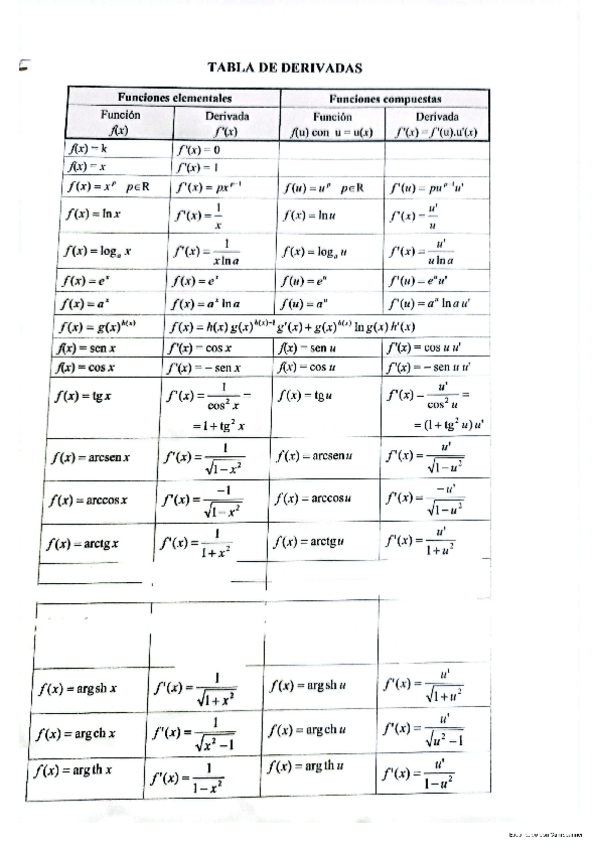 TABLA DE DERIVADAS
Funciones elementales Funciones compuestas
Función f(x) Derivada f'(x) Función f(u) con u = u(x) Derivada f'(x) = f'(u).u'(x)
f(x) = k f'(x) = 0
f(x) = x f'(x) = 1
f(x) = x^p p∈R f'(x) = px^(p-1) f(u) = u^p p∈R f'(u) = pu^(p-1)u'
f(x) = ln x f'(x) = 1/x f(x) = ln u f'(x) = u'/u
f(x) = log_a x f'(x) = 1/(x ln a) f(x) = log_a u f'(x) = u'/(u ln a)
f(x) = e^x f'(x) = e^x f(u) = e^u f'(u) = e^u u'
f(x) = a^x f'(x) = a^x ln a f(u) = a^u f'(u) = a^u ln a u'
f(x) = g(x)^h(x) f(x) = h(x) g(x)^(h(x)-1) g'(x) + g(x)^h(x) ln g(x) h'(x)
f(x) = sen x f'(x) = cos x f(x) = sen u f'(x) = cos u u'
f(x) = cos x f'(x) = – sen x f(x) = cos u f'(x) = – sen u u'
f(x) = tg x f'(x) = 1/cos² x = f(x) = tg u f'(x) = u'/cos² u =
= 1 + tg² x = (1 + tg² u) u'
f(x) = arcsen x f'(x) = 1/√(1–x²) f(x) = arcsen u f'(x) = u'/√(1–u²)
f(x) = arccos x f'(x) = –1/√(1–x²) f(x) = arccos u f'(x) = –u'/√(1–u²)
f(x) = arctg x f'(x) = 1/(1+x²) f(x) = arctg u f'(x) = u'/(1+u²)
f(x) = arg sh x f'(x) = 1/√(1+x²) f(x) = arg sh u f'(x) = u'/√(1+u²)
f(x) = arg ch x f'(x) = 1/√(x²–1) f(x) = arg ch u f'(x) = u'/√(u²–1)
f(x) = arg th x f'(x) = 1/(1–x²) f(x) = arg th u f'(x) = u'/(1–u²)